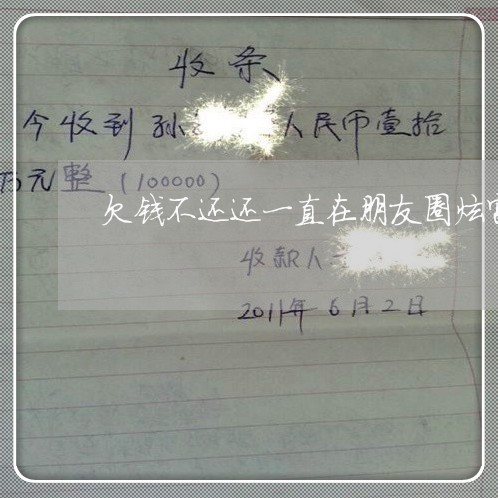 收条
今收到孙 人民币壹拾
万元整(100000)
欠钱不还还一直在朋友圈炫富
收款人
2011年6月2日